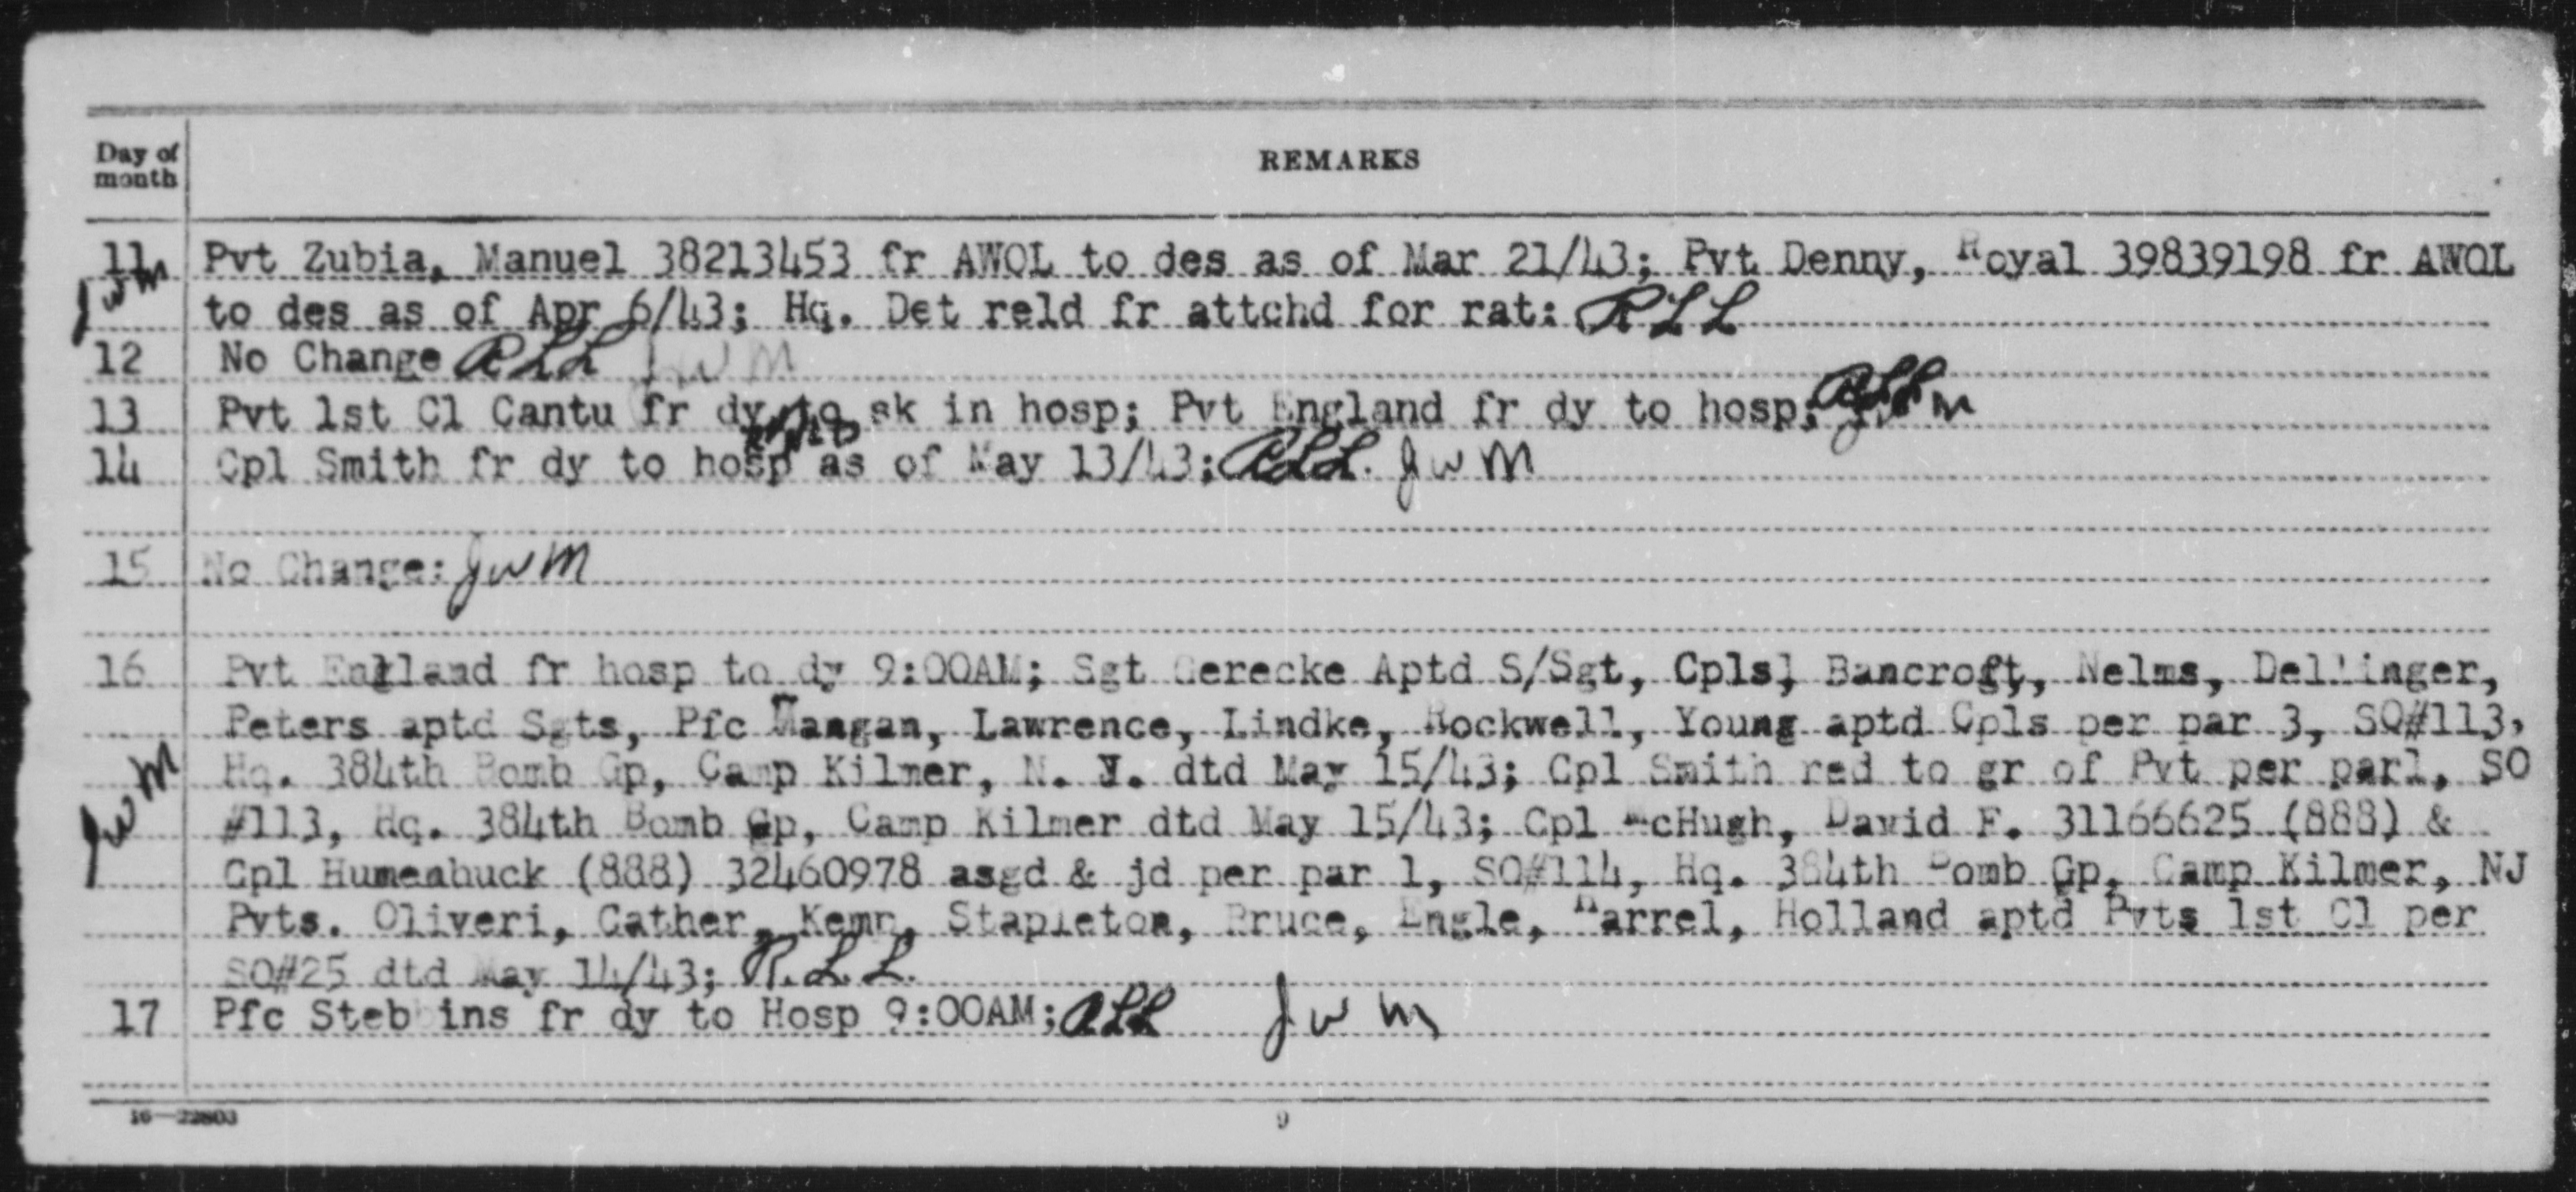 Day of
month
REMARKS
11 Pvt Zubia, Manuel 38213453 fr AWOL to des as of Mar 21/43; Pvt Denny, Royal 39839198 fr AWOL
JWM to des as of Apr 6/43; Hq. Det reld fr attchd for rat: RLL
12 No Change RLL JWM
13 Pvt 1st Cl Cantu fr dy to sk in hosp; Pvt England fr dy to hosp; RLL JWM
14 Cpl Smith fr dy to hosp as of May 13/43; RLL. JWM
15 No Change: JWM
16 Pvt England fr hosp to dy 9:00AM; Sgt Gerecke Aptd S/Sgt, Cpls, Bancroft, Nelms, Dellinger,
Peters aptd Sgts, Pfc Mangan, Lawrence, Lindke, Rockwell, Young aptd Cpls per par 3, SO#113,
JWM Hq. 384th Bomb Gp, Camp Kilmer, N. Y. dtd May 15/43; Cpl Smith red to gr of Pvt per par1, SO
#113, Hq. 384th Bomb Gp, Camp Kilmer dtd May 15/43; Cpl McHugh, David F. 31166625 (888) &
Cpl Humenhuck (888) 32460978 asgd & jd per par 1, SO#114, Hq. 384th Bomb Gp, Camp Kilmer, NJ
Pvts. Oliveri, Cather, Kemp, Stapleton, Bruce, Engle, Harrel, Holland aptd Pvts 1st Cl per
SO#25 dtd May 14/43; R.L.L.
17 Pfc Stebbins fr dy to Hosp 9:00AM; RLL JWM
16—22803
9